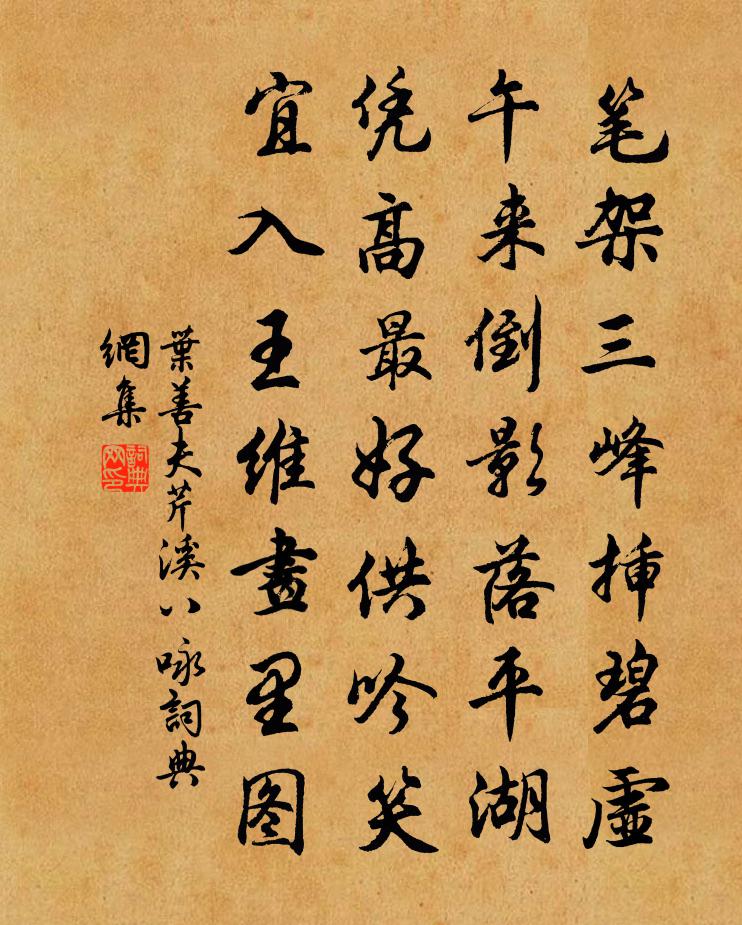 笔架三峰揷碧虚
午来倒影落平湖
凭高最好供吟笑
宜入王维畫里图
葉善夫芹溪八咏詞典
網集
詞典
网印